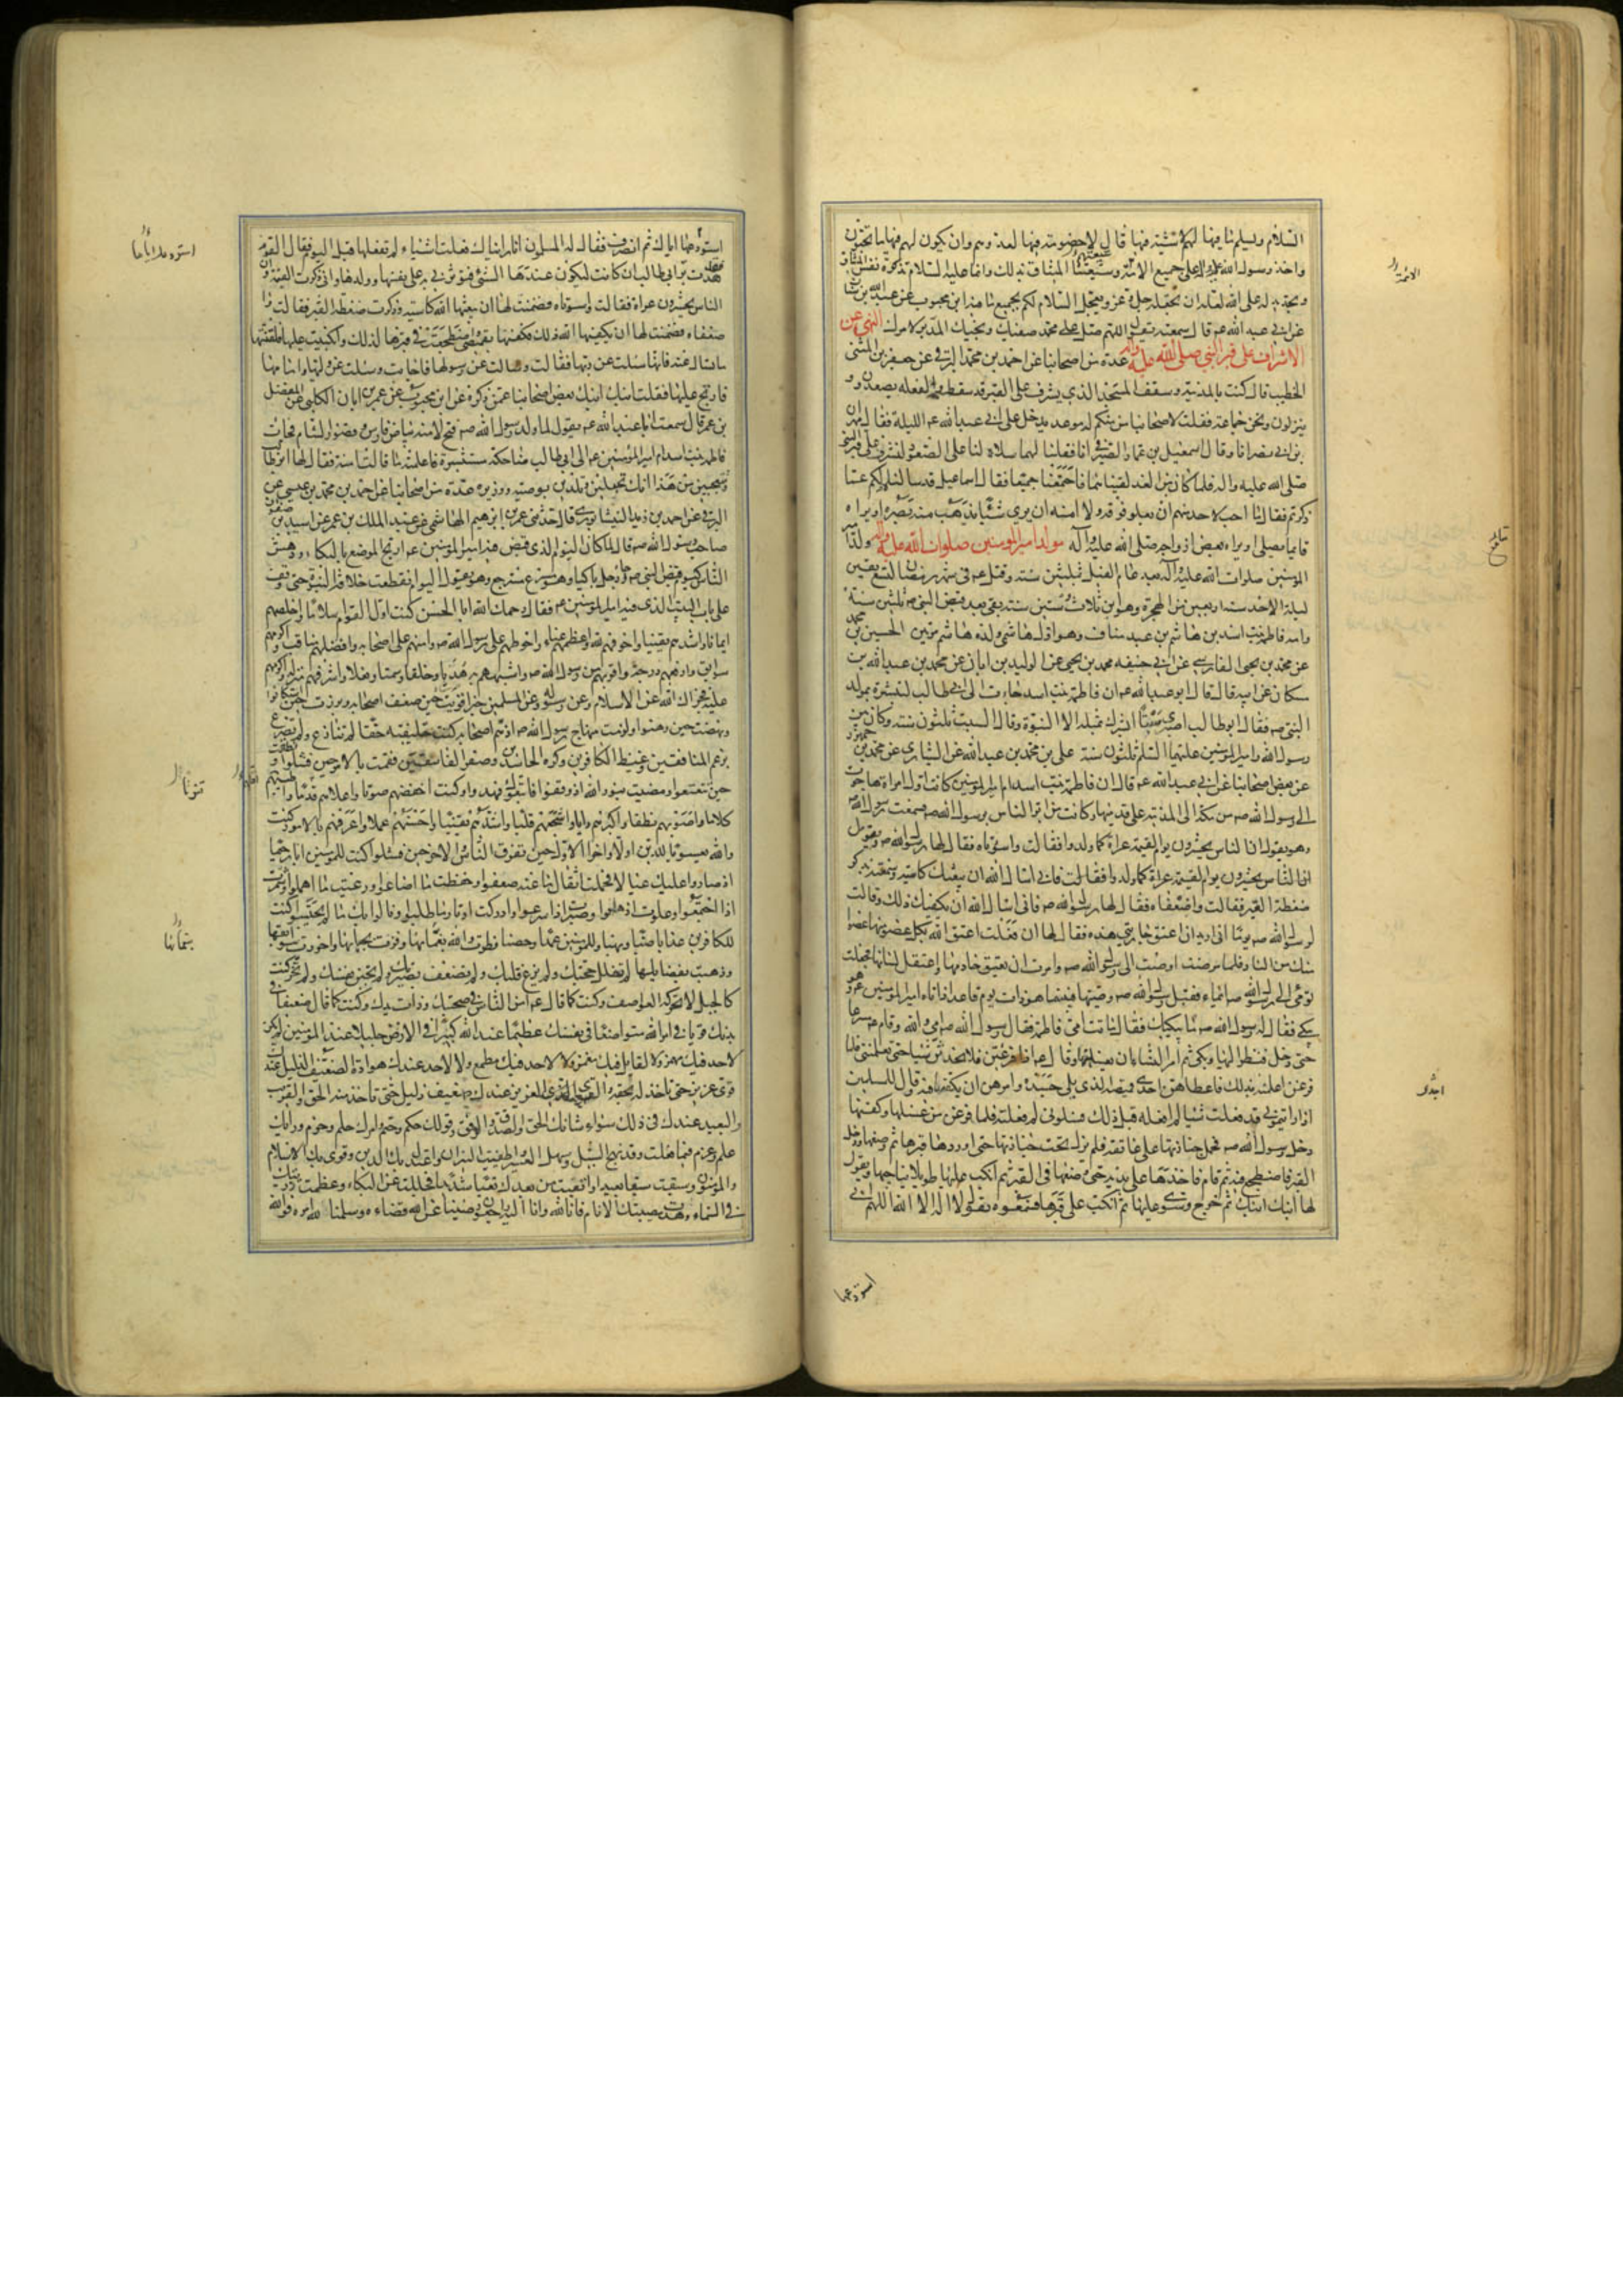 السلام ويسلم ما فيها لهم لاشية فيها قال لا خصومة فيها لعدوهم وان يكون لهم فيها ما يحبون
واخذ رسول الله على جميع الائمة وشيعتنا الميثاق بذلك وانما عليه السلام تذكرة نفس الميثاق
وتجديد له على الله لعله ان يعجله جل وعز ويعجل السلام لكم بجميع ما فيه ابن محبوب عن عبد الله بن سنان
عن ابي عبد الله عم قال سمعته يقول اللهم صل على محمد صفيك ونجيك المدبر لامرك النهي عن
الاشراف على قبر النبي صلى الله عليه وآله عدة من اصحابنا عن احمد بن محمد البرقي عن جعفر بن المثنى
الخطيب قال كنت بالمدينة وسقف المسجد الذي يشرف على القبر قد سقط والفعلة يصعدون و
ينزلون ونحن جماعة فقلت لاصحابنا من منكم له موعد يدخل على ابي عبد الله عم الليلة فقال مهران
بن ابي نصر انا وقال اسمعيل بن عمار الصيرفي انا فقلنا لهما سلاه لنا عن الصعود لنشرف على قبر النبي
صلى الله عليه واله فلما كان من الغد لقيناهما فاجتمعنا جميعا فقال اسماعيل قد سالناه لكم عما
ذكرتم فقال ما احب لاحد منهم ان يعلو فوقه ولا امنه ان يرى شيئا يذهب منه بصره او يراه
قائما يصلي او يراه مع بعض ازواجه صلى الله عليه وآله مولد امير المومنين صلوات الله عليه وآله ولد امير
المومنين صلوات الله عليه وآله بعد عام الفيل بثلثين سنة وقتل عم في شهر رمضان لتسع بقين
ليلة الاحد سنة اربعين من الهجرة وهو ابن ثلاث وستين سنة بقي بعد قبض النبي ص ثلثين سنة
وامه فاطمة بنت اسد بن هاشم بن عبد مناف وهو اول هاشمي ولده هاشم مرتين الحسين بن محمد
عن محمد بن يحيى الفارسي عن ابي حنيفة محمد بن يحيى عن الوليد بن ابان عن محمد بن عبد الله بن
مسكان عن ابيه قال قال ابو عبد الله عم ان فاطمة بنت اسد جاءت الى ابي طالب لتبشره بمولد
النبي ص فقال ابو طالب اصبري سبتا ابشرك بمثله الا النبوة وقال السبت ثلثون سنة وكان بين
رسول الله وامير المومنين عليهما السلم ثلثون سنة علي بن محمد بن عبد الله عن السياري عن محمد بن جمهور
عن بعض اصحابنا عن ابي عبد الله عم قال ان فاطمة بنت اسد ام امير المومنين كانت اول امراة هاجرت
الى رسول الله ص من مكة الى المدينة على قدميها وكانت من ابر الناس برسول الله ص فسمعت رسول الله
وهو يقول ان الناس يحشرون يوم القيمة عراة كما ولدوا فقالت واسوءتاه فقال لها رسول الله ص
فاني اسال الله ان يبعثك كاسية وسمعته يذكر
ضغطة القبر فقالت واضعفاه فقال لها رسول الله ص فاني اسال الله ان يكفيك ذلك وقالت
لرسول الله ص يوما اني اريد ان اعتق جاريتي هذه فقال لها ان فعلت اعتق الله بكل عضو منها عضوا
منك من النار فلما مرضت اوصت الى رسول الله ص وامرت ان يعتق خادمها واعتقل لسانها فجعلت
تومي الى رسول الله ص ايماء فقبل رسول الله ص وصيتها فبينما هو ذات يوم قاعد اذ اتاه امير المومنين عم وهو
يبكي فقال له رسول الله ص ما يبكيك فقال ماتت امي فاطمة فقال رسول الله ص امي والله وقام عم مسرعا
حتى دخل فنظر اليها وبكى ثم امر النساء ان يغسلنها وقال عم اذا فرغتن فلا تحدثن شيئا حتى تعلمنني فلما
فرغن اعلمنه بذلك فاعطاهن احدى قميصه الذي يلي جسده وامرهن ان يكفنها فيه وقال للمسلمين
اذا رايتموني قد فعلت شيئا لم افعله قبل ذلك فسلوني لم فعلته فلما فرغن من غسلها وكفنها
دخل رسول الله ص فحمل جنازتها على عاتقه فلم يزل تحت جنازتها حتى اوردها قبرها ثم وضعها ودخل
القبر فاضطجع فيه ثم قام فاخذها على يديه حتى وضعها في القبر ثم انكب عليها طويلا يناجيها ويقول
لها ابنك ابنك ثم خرج وسوى عليها ثم انكب على قبرها فسمعوه يقول لا اله الا الله اللهم اني
استودعها
استودعها اياك ثم انصرف فقال له المسلمون انا رايناك فعلت اشياء لم تفعلها قبل اليوم فقال اليوم
فقدت بر ابي طالب ان كانت ليكون عندها الشيء فتؤثرني به على نفسها وولدها واني ذكرت القيمة وان
الناس يحشرون عراة فقالت واسوءتاه فضمنت لها ان يبعثها الله كاسية وذكرت ضغطة القبر فقالت وا
ضعفاه فضمنت لها ان يكفيها الله ذلك فكفنتها بقميصي واضطجعت في قبرها لذلك وانكببت عليها فلقنتها
ما تسال عنه فانها سئلت عن ربها فقالت وسئلت عن رسولها فاجابت وسئلت عن وليها وامامها
فارتج عليها فقلت ابنك ابنك بعض اصحابنا عمن ذكره عن ابن محبوب عن عمر بن ابان الكلبي عن المفضل
بن عمر قال سمعت ابا عبد الله عم يقول لما ولد رسول الله ص فتح لامنة بياض فارس وقصور الشام فجاءت
فاطمة بنت اسد ام امير المؤمنين عم الى ابي طالب ضاحكة مستبشرة فاعلمته ما قالت امنة فقال لها ابو طالب
وتتعجبين من هذا انك تحبلين وتلدين بوصيه ووزيره عدة من اصحابنا عن احمد بن محمد بن عيسى عن
البرقي عن احمد بن زيد النيشابوري قال حدثني عمر بن ابرهيم الهاشمي عن عبد الملك بن عمر عن اسيد بن صفوان
صاحب رسول الله ص قال لما كان اليوم الذي قبض فيه امير المومنين عم ارتج الموضع بالبكاء ودهش
الناس كيوم قبض النبي ص وجاء رجل باكيا وهو مسرع مسترجع وهو يقول اليوم انقطعت خلافة النبوة حتى وقف
على باب البيت الذي فيه امير المومنين عم فقال رحمك الله ابا الحسن كنت اول القوم اسلاما واخلصهم
ايمانا واشدهم يقينا واخوفهم لله واعظمهم عناء واحوطهم على رسول الله ص وامنهم على اصحابه وافضلهم مناقب واكرمهم
سوابق وارفعهم درجة واقربهم من رسول الله ص واشبههم به هديا وخلقا وسمتا وفعلا واشرفهم منزلة واكرمهم
عليه فجزاك الله عن الاسلام وعن رسوله وعن المسلمين خيرا قويت حين ضعف اصحابه وبرزت حين استكانوا
ونهضت حين وهنوا ولزمت منهاج رسول الله ص اذ هم اصحابه كنت خليفته حقا لم تنازع ولم تضرع
برغم المنافقين وغيظ الكافرين وكره الحاسدين وصغر الفاسقين فقمت بالامر حين فشلوا ونطقت
حين تتعتعوا ومضيت بنور الله اذ وقفوا فاتبعوك فهدوا وكنت اخفضهم صوتا واعلاهم قدما
كلاما واصوبهم منطقا واكبرهم رايا واشجعهم قلبا واشدهم يقينا واحسنهم عملا واعرفهم بالامور كنت
والله يعسوبا للدين اولا واخرا الاول حين تفرق الناس والاخر حين فشلوا كنت للمومنين ابا رحيما
اذ صاروا عليك عيالا فحملت اثقال ما عنه ضعفوا وحفظت ما اضاعوا ورعيت ما اهملوا وشمرت
اذا اجتمعوا وعلوت اذ هلعوا وصبرت اذ اسرعوا وادركت اوتار ما طلبوا ونالوا بك ما لم يحتسبوا كنت
للكافرين عذابا صبا ونهبا وللمومنين عمدا وحصنا فطرت والله بنعمائها وفزت بحبائها واحرزت سوابقها
وذهبت بفضايلها لم تفلل حجتك ولم يزغ قلبك ولم تضعف بصيرتك ولم تجبن نفسك ولم تخر كنت
كالجبل لا تحركه العواصف وكنت كما قال عم امن الناس في صحبتك وذات يدك وكنت كما قال ضعيفا في
بدنك قويا في امر الله متواضعا في نفسك عظيما عند الله كبيرا في الارض جليلا عند المومنين لم يكن
لاحد فيك مهمز ولا لقايل فيك مغمز ولا لاحد فيك مطمع ولا لاحد عندك هوادة الضعيف الذليل عندك
قوي عزيز حتى تاخذ له بحقه والقوي العزيز عندك ضعيف ذليل حتى تاخذ منه الحق والقريب
والبعيد عندك في ذلك سواء شانك الحق والصدق والرفق وقولك حكم وحتم وامرك حلم وحزم ورايك
علم وعزم فيما فعلت وقد نهج السبيل وسهل العسير واطفيت النيران واعتدل بك الدين وقوي بك الاسلام
والمؤمنون وسبقت سبقا بعيدا واتعبت من بعدك تعبا شديدا فجللت عن البكاء وعظمت رزيتك
في السماء وهدت مصيبتك الانام فانا لله وانا اليه راجعون رضينا عن الله قضاءه وسلمنا لله امره فوالله